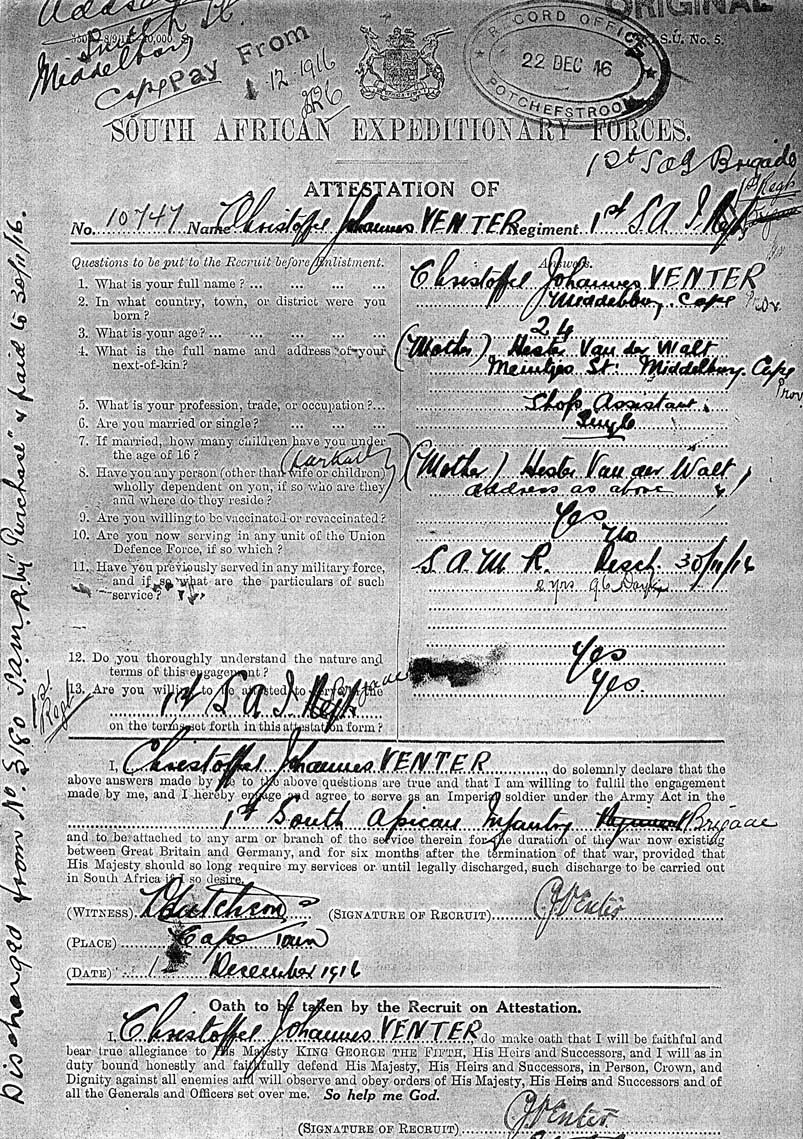 Address
St.
Middelburg
Cape
Pay From
1.12.1916
ORIGINAL
S.U. No. 5.
RECORD OFFICE
22 DEC 16
POTCHEFSTROOM
SOUTH AFRICAN EXPEDITIONARY FORCES.
1st S A I Brigade
1st Regt
ATTESTATION OF
No. 10747 Name Christoffel Johannes VENTER Regiment 1st S. A. I. Regt
Questions to be put to the Recruit before Enlistment.
Answers.
1. What is your full name ? ... ... ... ...
Christoffel Johannes VENTER
2. In what country, town, or district were you
born ?
Middelburg Cape Prov.
3. What is your age ? ... ... ... ...
24
4. What is the full name and address of your
next-of-kin ?
(Mother) Hester Van der Walt
Meintjes St: Middelburg. Cape
Prov
5. What is your profession, trade, or occupation ?
Shop Assistant.
6. Are you married or single ? ... ... ...
Single
7. If married, how many children have you under
the age of 16 ?
8. Have you any person (other than wife or children)
(partially)
wholly dependent on you, if so who are they
and where do they reside ?
(Mother) Hester Van der Walt
address as above
9. Are you willing to be vaccinated or revaccinated ?
Yes
10. Are you now serving in any unit of the Union
Defence Force, if so which ?
No
11. Have you previously served in any military force,
and if so what are the particulars of such
service ?
S. A. M. R. Disch. 30/11/16
2 yrs 96 Days
12. Do you thoroughly understand the nature and
terms of this engagement ?
Yes
13. Are you willing to be attested to serve in the
1st S A I Regt Brigade
on the terms set forth in this attestation form ?
Yes.
1st Regt
I, Christoffel Johannes VENTER, do solemnly declare that the
above answers made by me to the above questions are true and that I am willing to fulfil the engagement
made by me, and I hereby engage and agree to serve as an Imperial soldier under the Army Act in the
1st South African Infantry Regiment Brigade
and to be attached to any arm or branch of the service therein for the duration of the war now existing
between Great Britain and Germany, and for six months after the termination of that war, provided that
His Majesty should so long require my services or until legally discharged, such discharge to be carried out
in South Africa if I so desire.
(WITNESS) (SIGNATURE OF RECRUIT) CJVenter
(PLACE) Cape Town
(DATE) 1 December 1916
Oath to be taken by the Recruit on Attestation.
I, Christoffel Johannes VENTER do make oath that I will be faithful and
bear true allegiance to His Majesty KING GEORGE THE FIFTH, His Heirs and Successors, and I will as in
duty bound honestly and faithfully defend His Majesty, His Heirs and Successors, in Person, Crown, and
Dignity against all enemies and will observe and obey orders of His Majesty, His Heirs and Successors and of
all the Generals and Officers set over me. So help me God.
(SIGNATURE OF RECRUIT) CJVenter
Discharged from No. 5180 S.A.M.R. by "Purchase" & paid to 30/11/16.